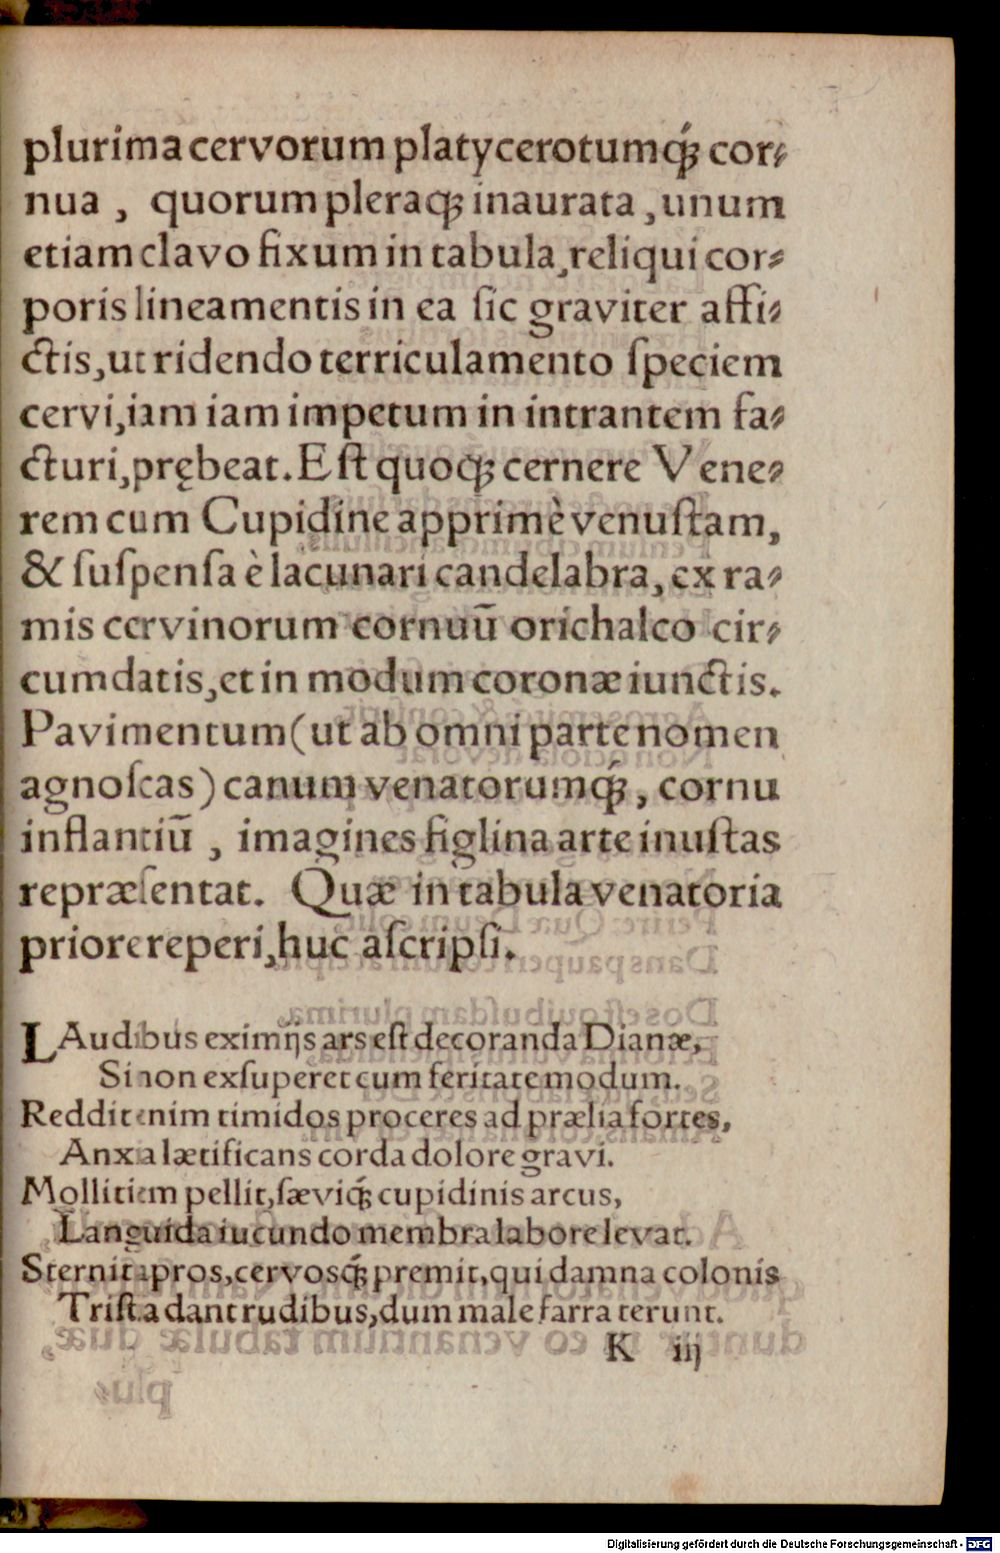 plurima cervorum platycerotumq́ꝫ cor⸗
nua , quorum pleraqꝫ inaurata , unum
etiam clavo fixum in tabula, reliqui cor⸗
poris lineamentis in ea ſic graviter affi⸗
ctis, ut ridendo terriculamento ſpeciem
cervi, iam iam impetum in intrantem fa⸗
cturi, prębeat. Eſt quoqꝫ cernere Vene⸗
rem cum Cupidine apprimè venuſtam,
& ſuſpenſa è lacunari candelabra, ex ra⸗
mis cervinorum cornuū orichalco cir⸗
cumdatis, et in modum coronæ iunctis.
Pavimentum (ut ab omni parte nomen
agnoſcas) canum venatorumq́ꝫ, cornu
inflantiū , imagines figlina arte inuſtas
repræſentat. Quæ in tabula venatoria
priore reperi, huc aſcripſi.
LAudibus eximijs ars eſt decoranda Dianæ,
Si non exſuperet cum feritate modum.
Reddit enim timidos proceres ad prælia fortes,
Anxia lætificans corda dolore gravi.
Mollitiem pellit, ſæviq́ꝫ cupidinis arcus,
Languida iucundo membra labore levat.
Sternit apros, cervosq́ꝫ premit, qui damna colonis
Triſtia dant rudibus, dum male farra terunt.
K iij
plu⸗
Digitalisierung gefördert durch die Deutsche Forschungsgemeinschaft - DFG